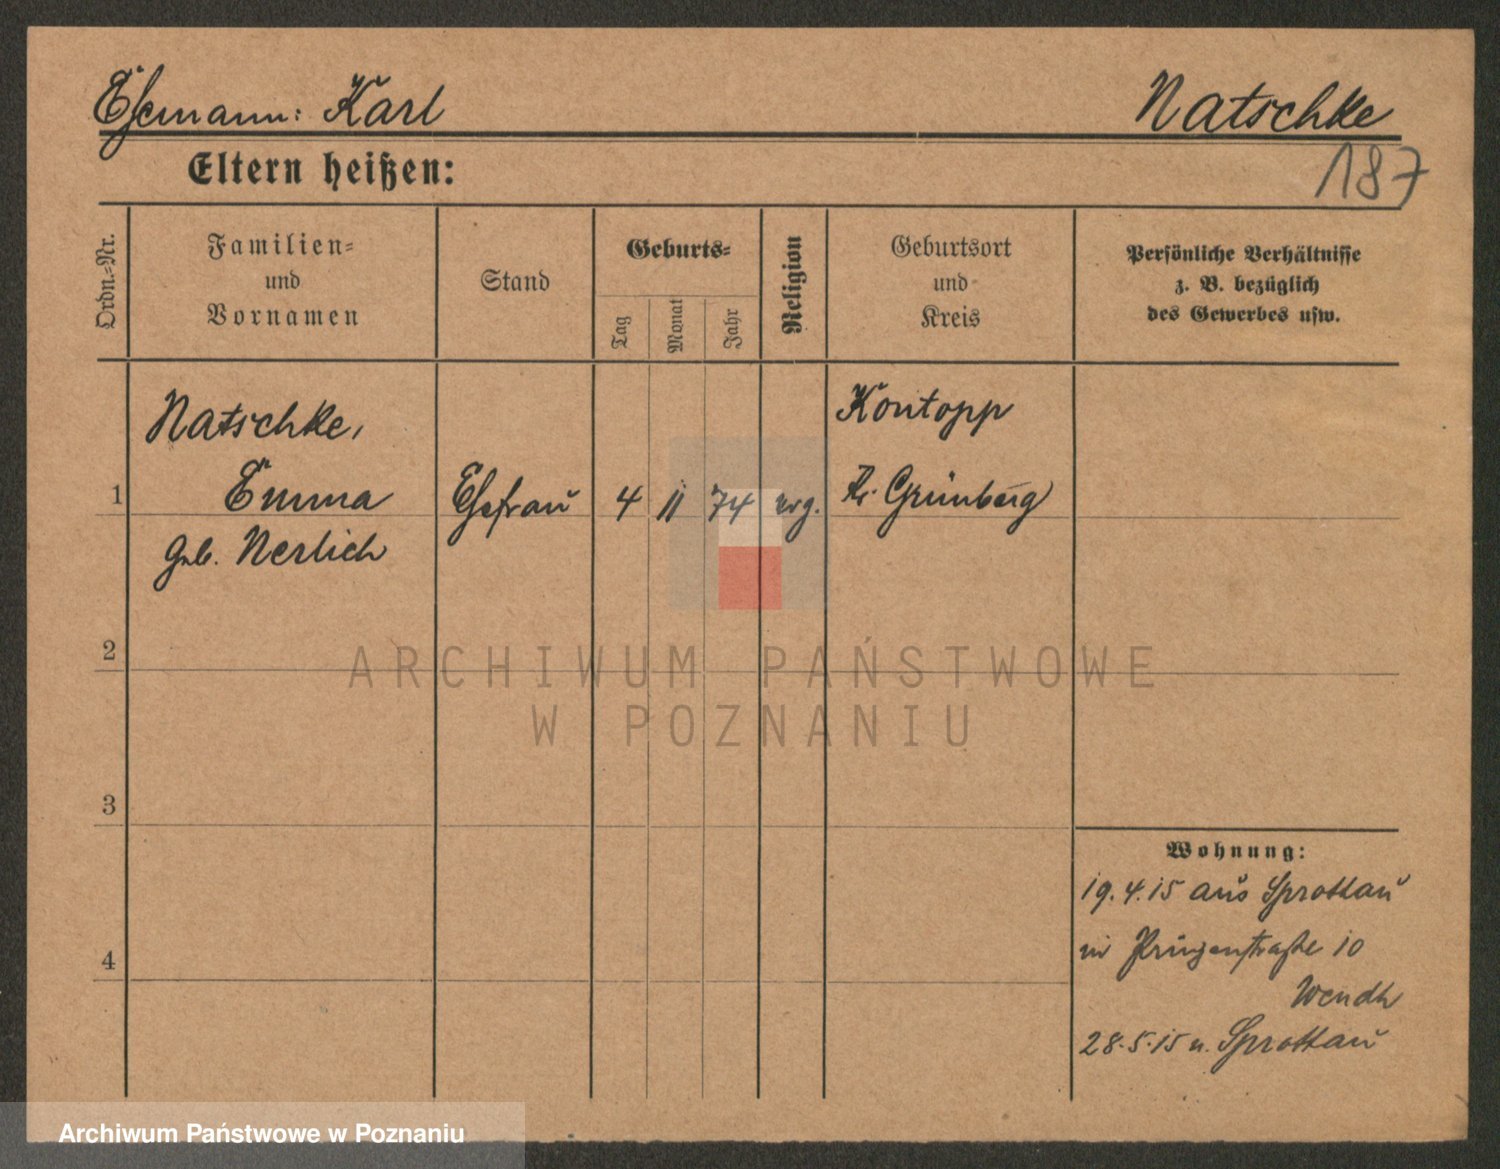 Ehemann: Karl Natschke
187
Eltern heißen:
Ordn.-Nr.
Familien-
und
Vornamen
Stand
Geburts-
Tag
Monat
Jahr
Religion
Geburtsort
und
Kreis
Persönliche Verhältnisse
z. B. bezüglich
des Gewerbes usw.
1
Natschke,
Emma
geb. Nerlich
Ehefrau
4
11
74
evg.
Kontopp
Kr. Grünberg
2
3
4
Wohnung:
19.4.15 aus Sprottau
in Prinzenstraße 10
Wendh
28.5.15 n. Sprottau
ARCHIWUM PAŃSTWOWE
W POZNANIU
Archiwum Państwowe w Poznaniu